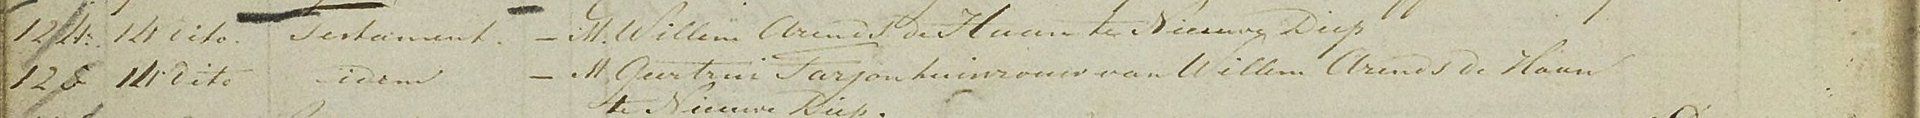 124. 14 dito. Testament. - M. Willem Arends de Haan te Nieuwe Diep
125 14 dito idem - M Geertrui Tarjon huisvrouw van Willem Arends de Haan
te Nieuwe Diep.